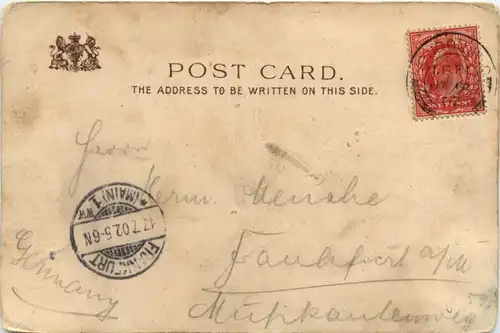 POST CARD.
THE ADDRESS TO BE WRITTEN ON THIS SIDE.
Herrn
Herm. Menche
Frankfurt a/M
Musikantenweg
Germany
FRANKFURT (MAIN) 1.
17.7.02.5-6N
WW